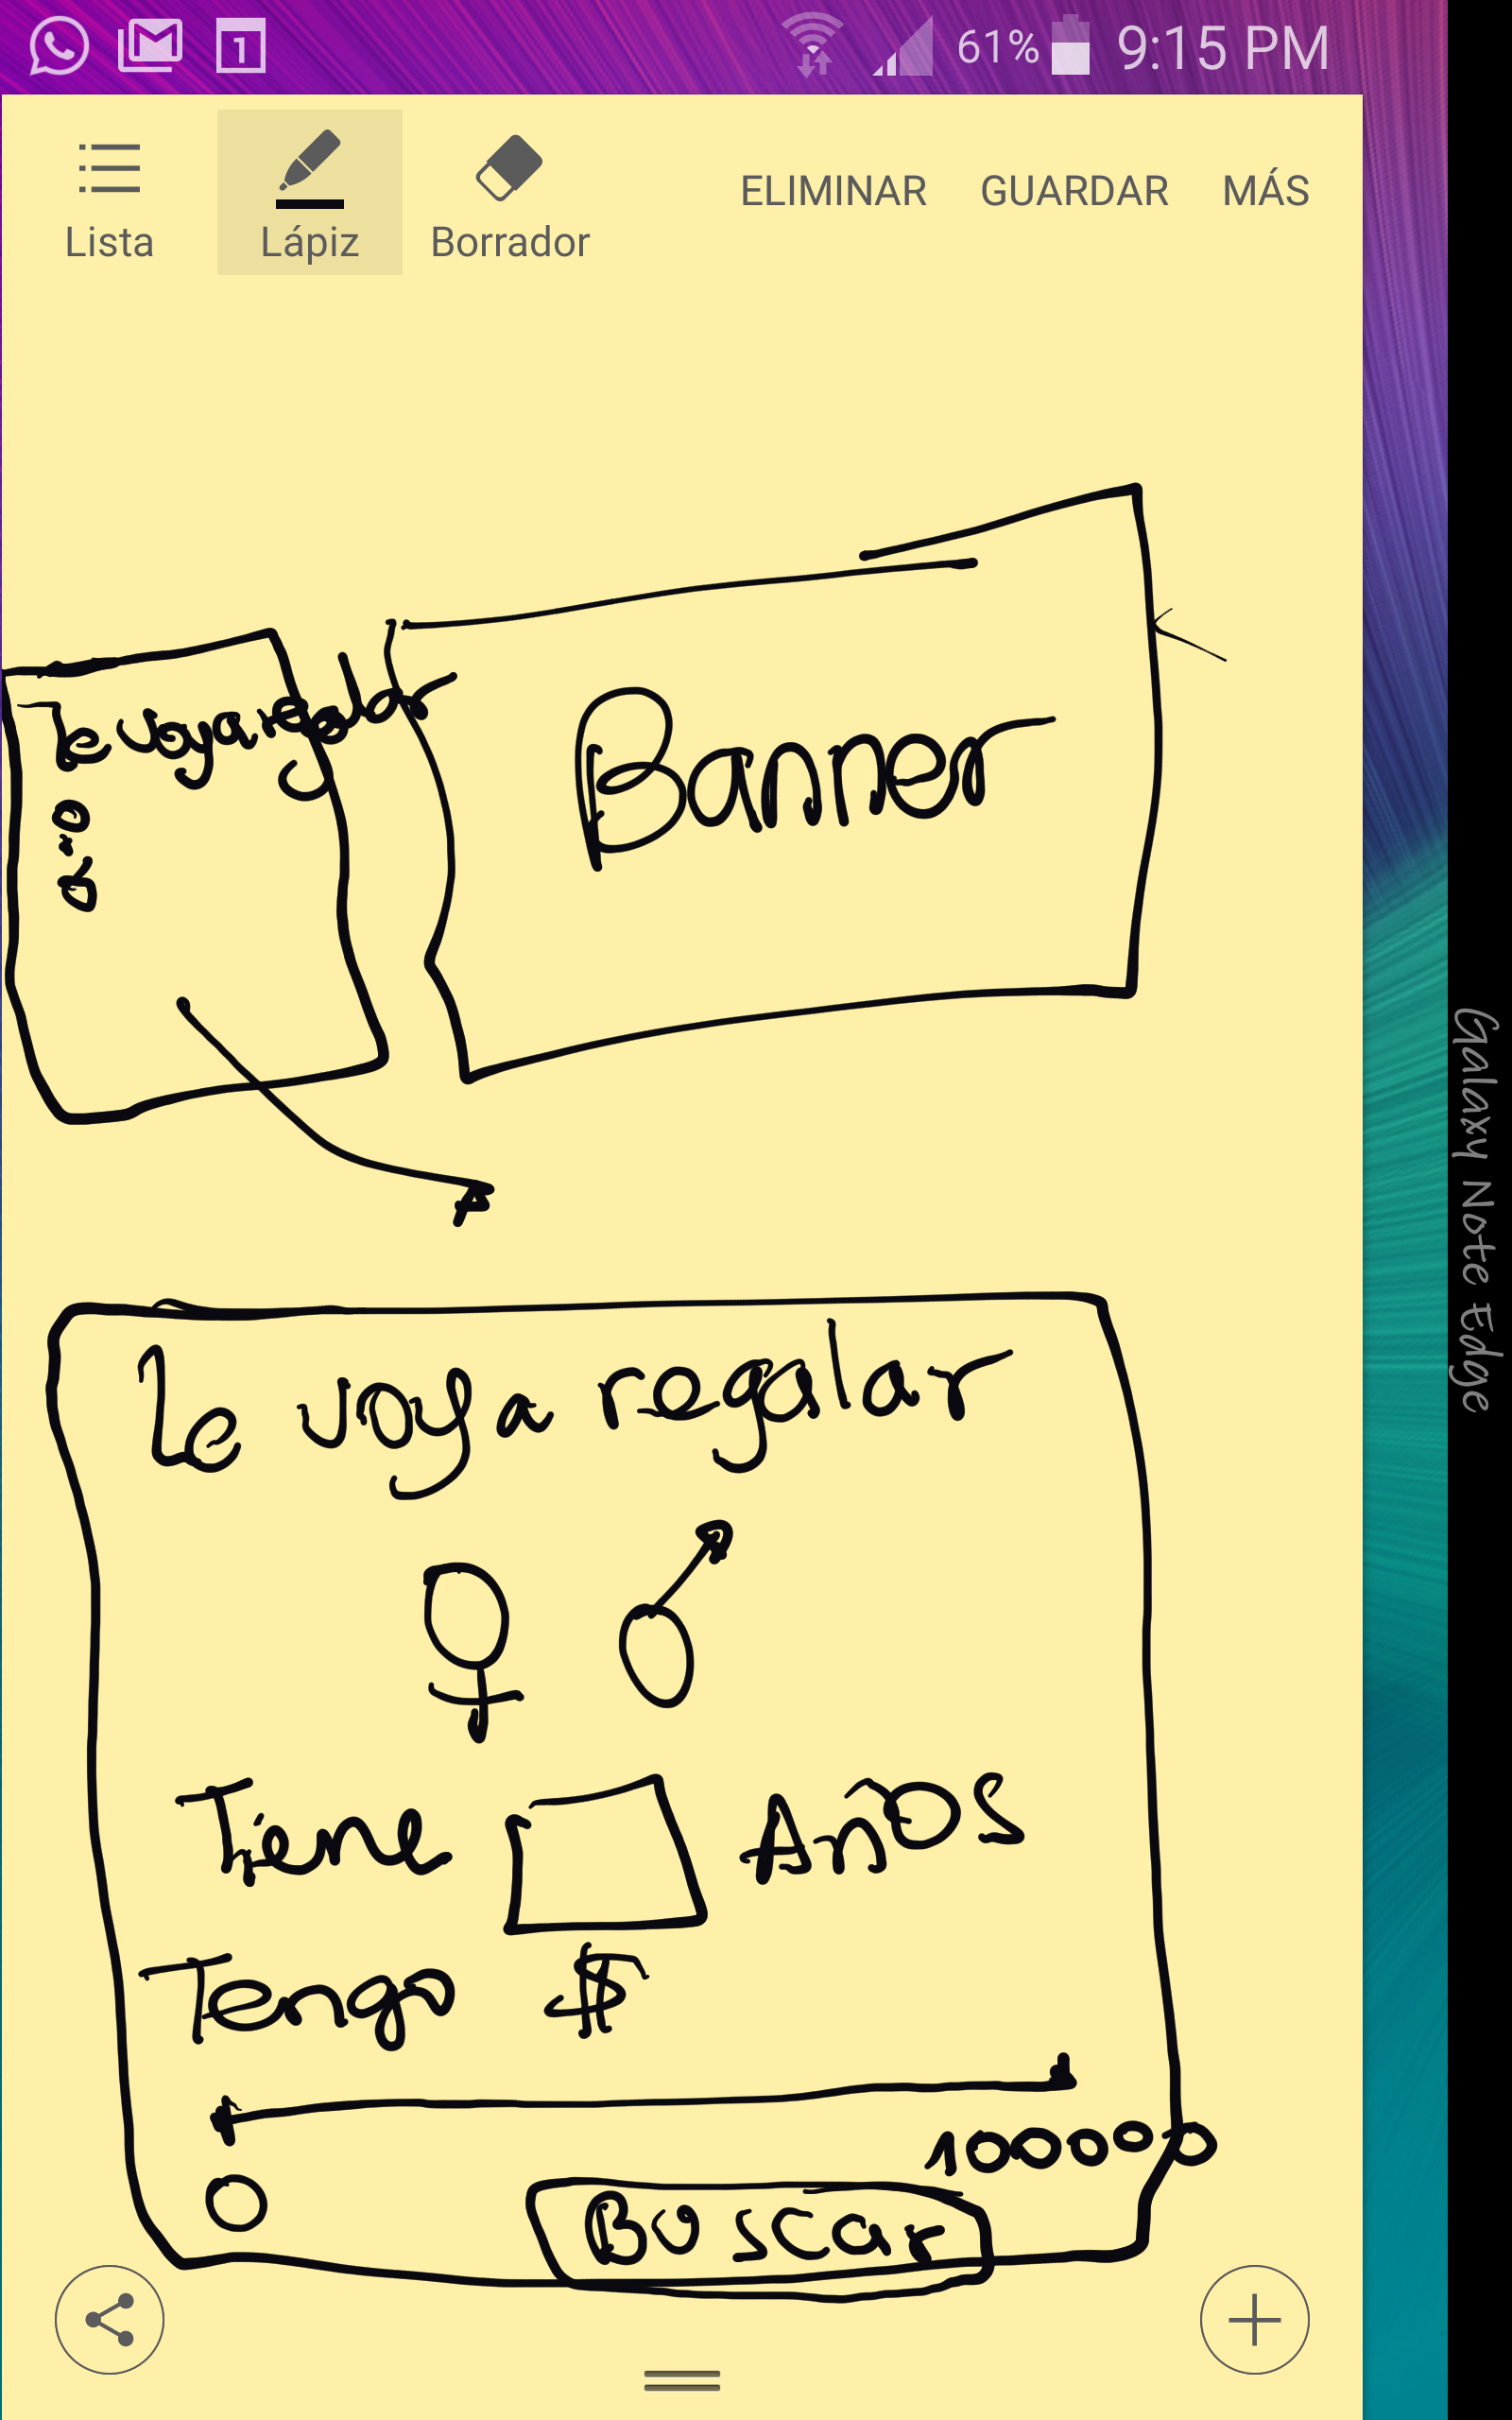 1
61%
9:15 PM
Lista
Lápiz
Borrador
ELIMINAR
GUARDAR
MÁS
Te voy a regalar
Banner
Le voy a regalar
♀ ♂
Tiene
AñOS
Tengo $
0
100000
Buscar
Galaxy Note Edge